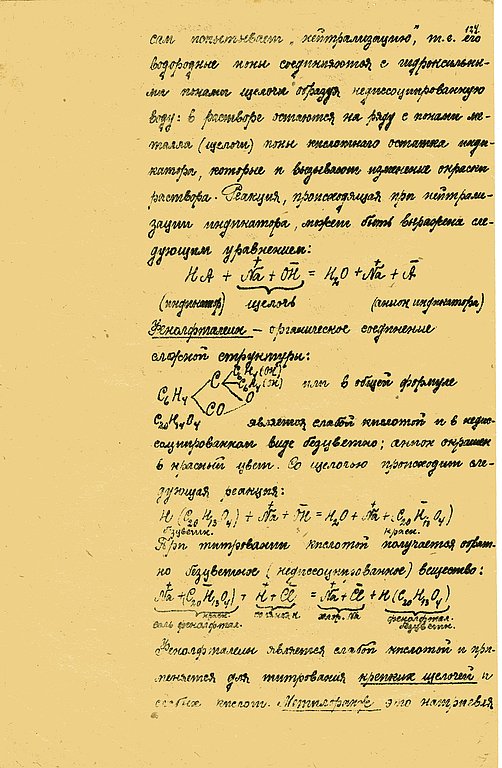 124
сам попытывает „нейтрализацию", т.е. его
водородные ионы соединяются с гидроксильны-
ми ионами щелочи образуя недиссоциированную
воду: в растворе остаются на ряду с ионами ме-
талла (щелочи) ионы кислотного остатка инди-
катора, которые и вызывают изменение окраски
раствора. Реакция, происходящая при нейтрали-
зации индикатора, может быть выражена сле-
дующим уравнением:
HA + N̄a⁺ + OH̄ = H₂O + Na⁺ + Ā
(индикатор) щелочь (анион индикатора)
Фенолфталеин — органическое соединение
сложной структуры:
C₆H₄ C C₆H₄(OH) C₆H₄(OH) O CO или в общей формуле
C₂₀H₁₄O₄ является слабой кислотой и в недис-
социированном виде бесцветно; анион окрашен
в красный цвет. Со щелочью происходит сле-
дующая реакция:
H(C₂₀H₁₃O₄) + Na⁺ + OH̄ = H₂O + Na⁺ + (C₂₀H̄₁₃O₄)
безцветн. красн.
При титровании кислотой получается обрат-
но безцветное (недиссоциированное) вещество:
Na⁺ + (C₂₀H̄₁₃O₄) + H⁺ + Cl̄ = Na⁺ + Cl̄ + H(C₂₀H₁₃O₄)
соль фенолфтал. хлор. Na фенолфтал.
безцветн.
Фенолфталеин является слабой кислотой и при-
меняется для титрования крепких щелочей и
слабых кислот. Метилоранж это натриевая